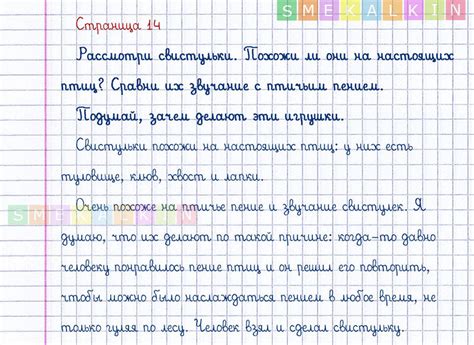 SMEKALKIN
Страница 14
Рассмотри свистульки. Похожи ли они на настоящих
птиц? Сравни их звучание с птичьим пением.
Подумай, зачем делают эти игрушки.
Свистульки похожи на настоящих птиц: у них есть
туловище, клюв, хвост и лапки.
SMEKALKIN
Очень похоже на птичье пение и звучание свистулек. Я
думаю, что их делают по такой причине: когда-то давно
человеку понравилось пение птиц и он решил его повторить,
чтобы можно было наслаждаться пением в любое время, не
только гуляя по лесу. Человек взял и сделал свистульку.